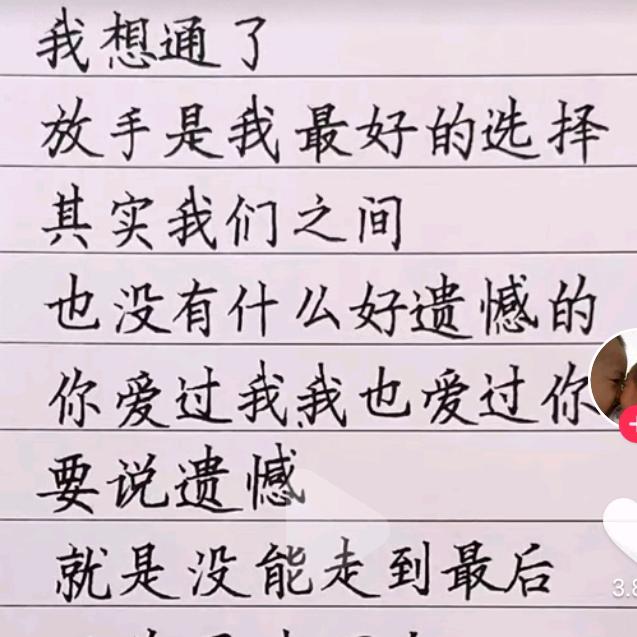 我想通了
放手是我最好的选择
其实我们之间
也没有什么好遗憾的
你爱过我我也爱过你
要说遗憾
就是没能走到最后
3.8